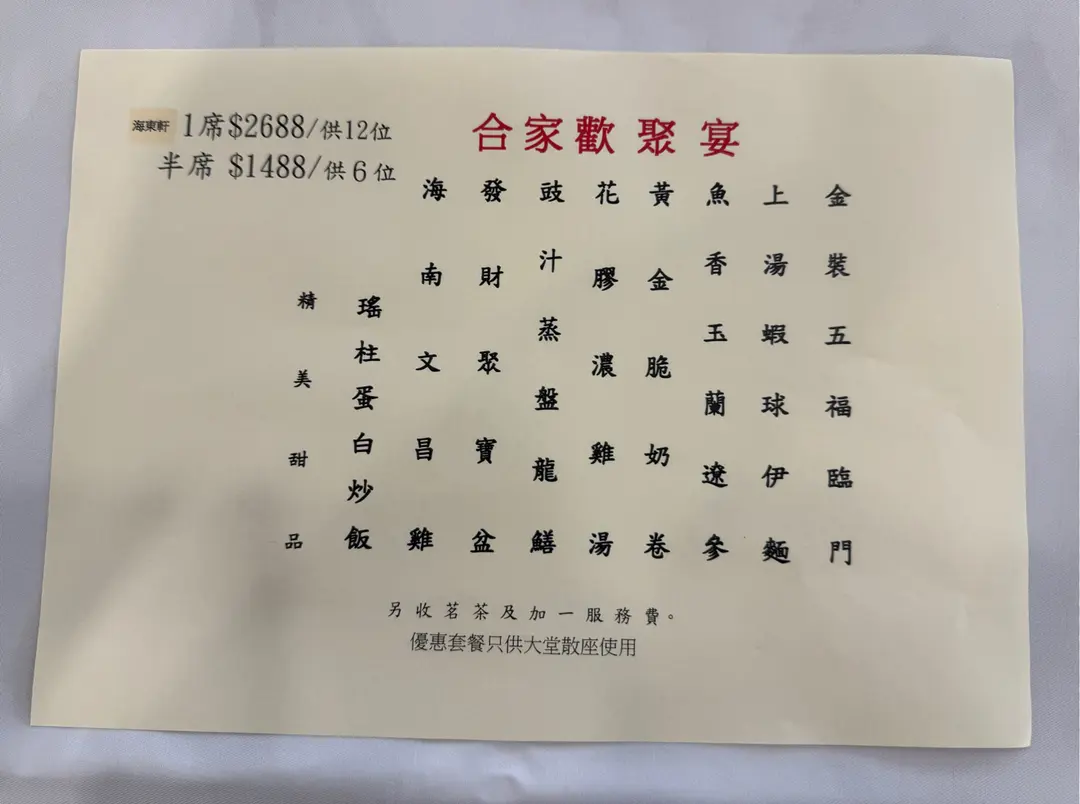 海東軒
1席$2688/供12位
半席 $1488/供6位
合家歡聚宴
金裝五福臨門
上湯蝦球伊麵
魚香玉蘭遼參
黃金脆奶卷
花膠濃雞湯
豉汁蒸盤龍鱔
發財聚寶盆
海南文昌雞
瑤柱蛋白炒飯
精美甜品
另收茗茶及加一服務費。
優惠套餐只供大堂散座使用